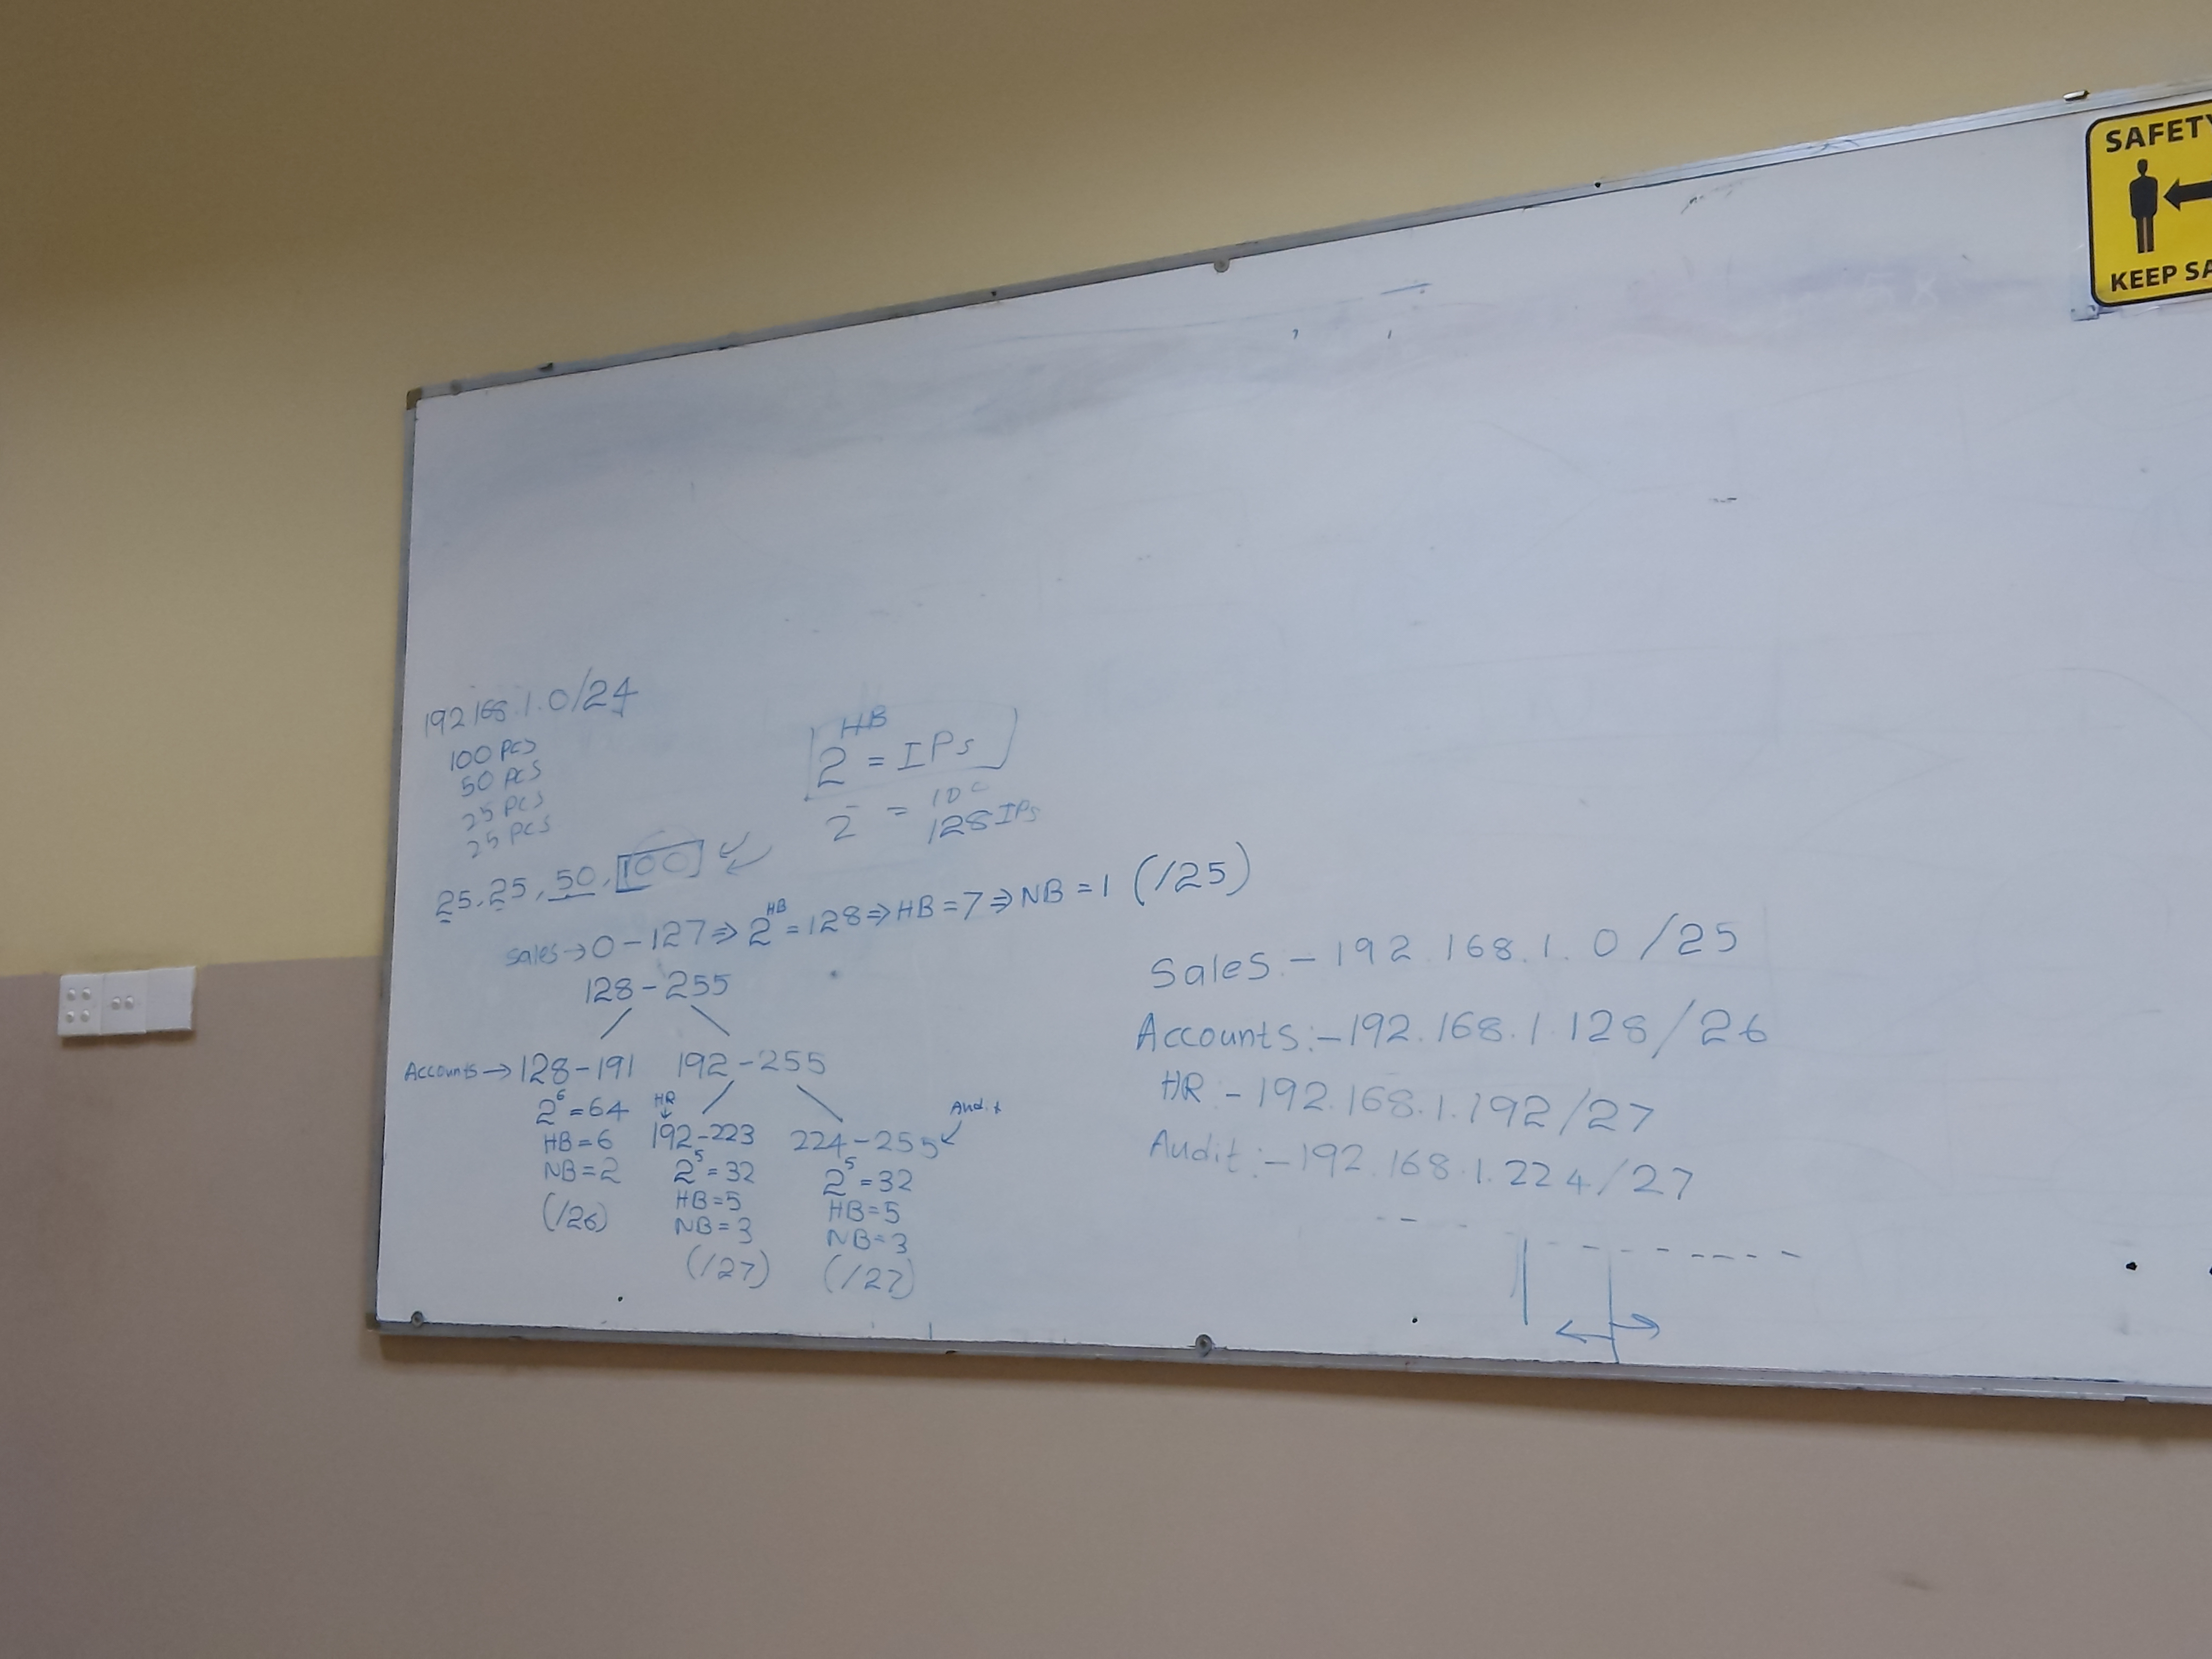 192.168.1.0/24
100 PCS
50 PCS
25 PCS
25 PCS
HB
2 = IPs
2 = 100
128 IPs
25, 25, 50, 100
Sales → 0 - 127 ⇒ 2^HB = 128 ⇒ HB = 7 ⇒ NB = 1 (/25)
128 - 255
Accounts → 128 - 191
192 - 255
2^6 = 64
HB = 6
NB = 2
(/26)
HR
192 - 223
2^5 = 32
HB = 5
NB = 3
(/27)
Audit
224 - 255
2^5 = 32
HB = 5
NB = 3
(/27)
Sales :- 192.168.1.0/25
Accounts :- 192.168.1.128/26
HR :- 192.168.1.192/27
Audit :- 192.168.1.224/27
SAFETY
KEEP